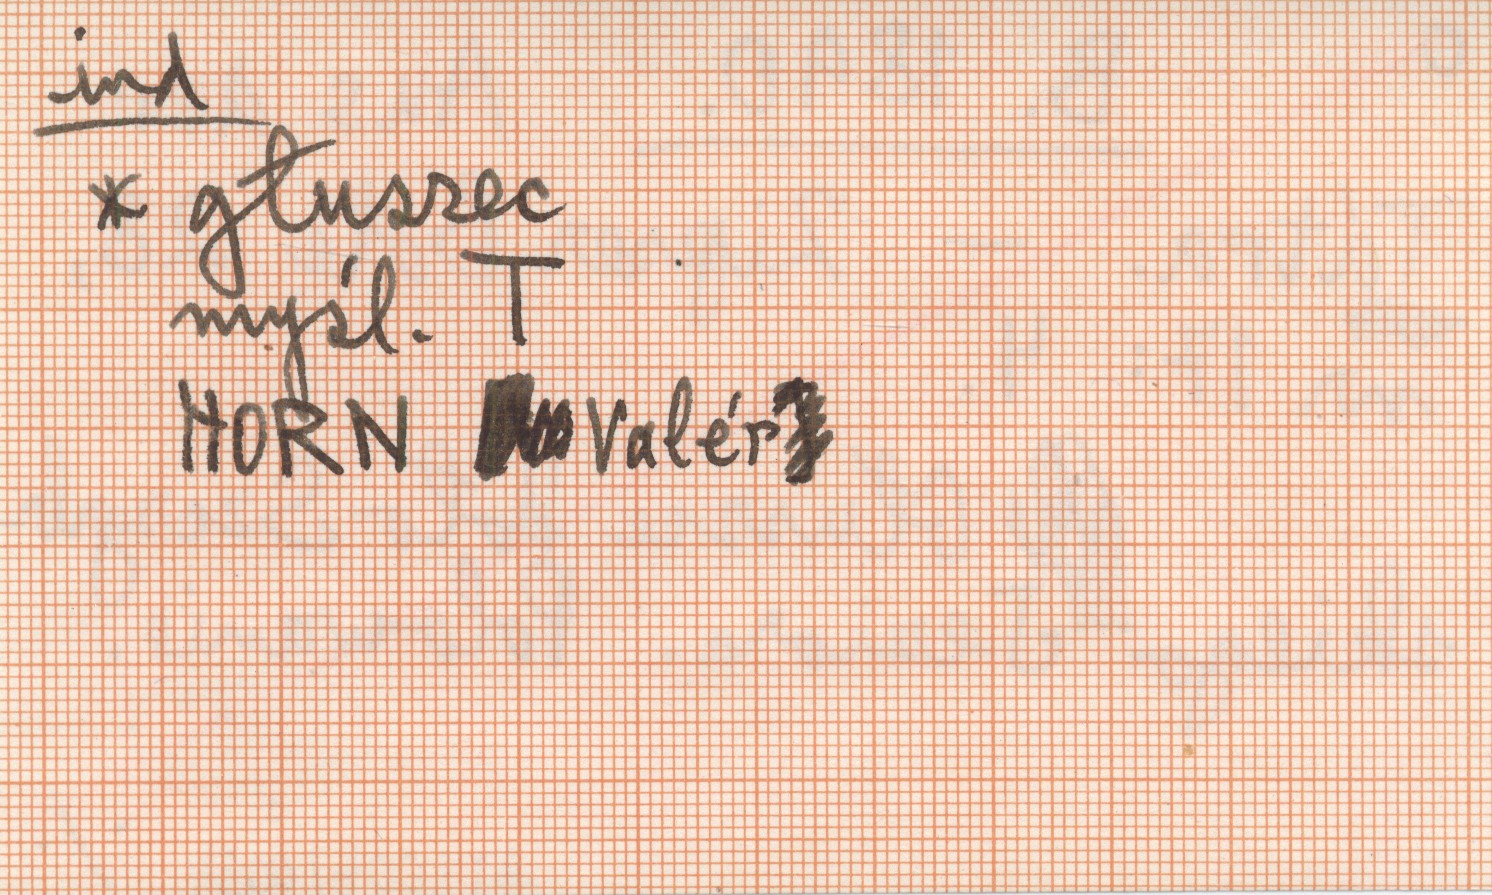 ind
* głuszec
myśl. T
HORN Valér